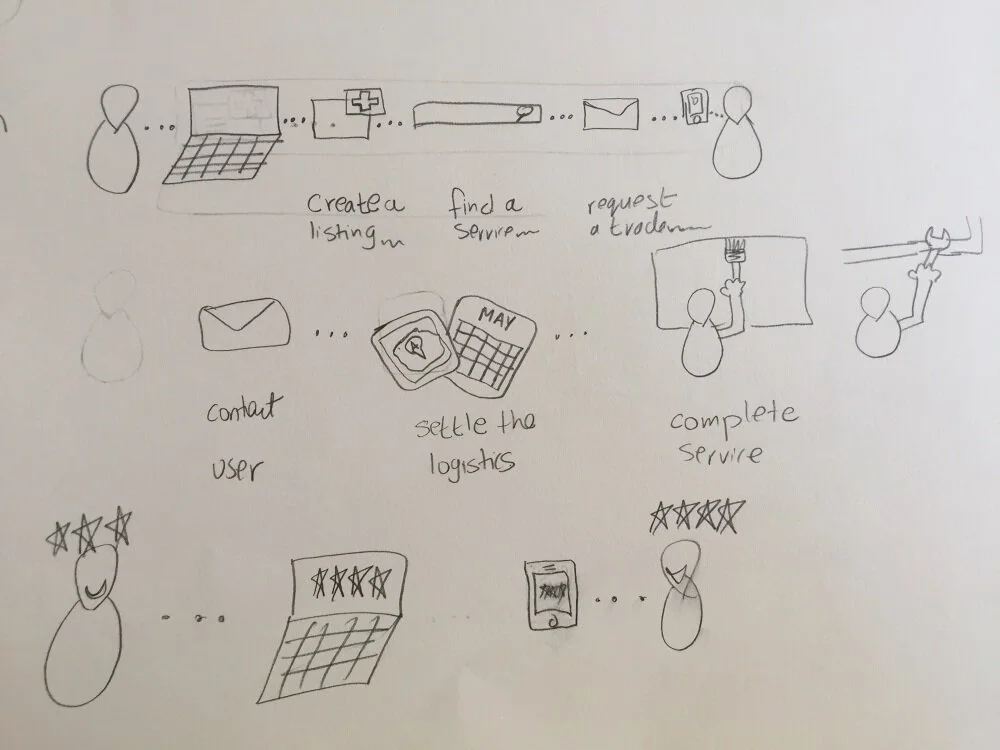 create a
listing
find a
service
request
a trade
MAY
contact
user
settle the
logistics
complete
service